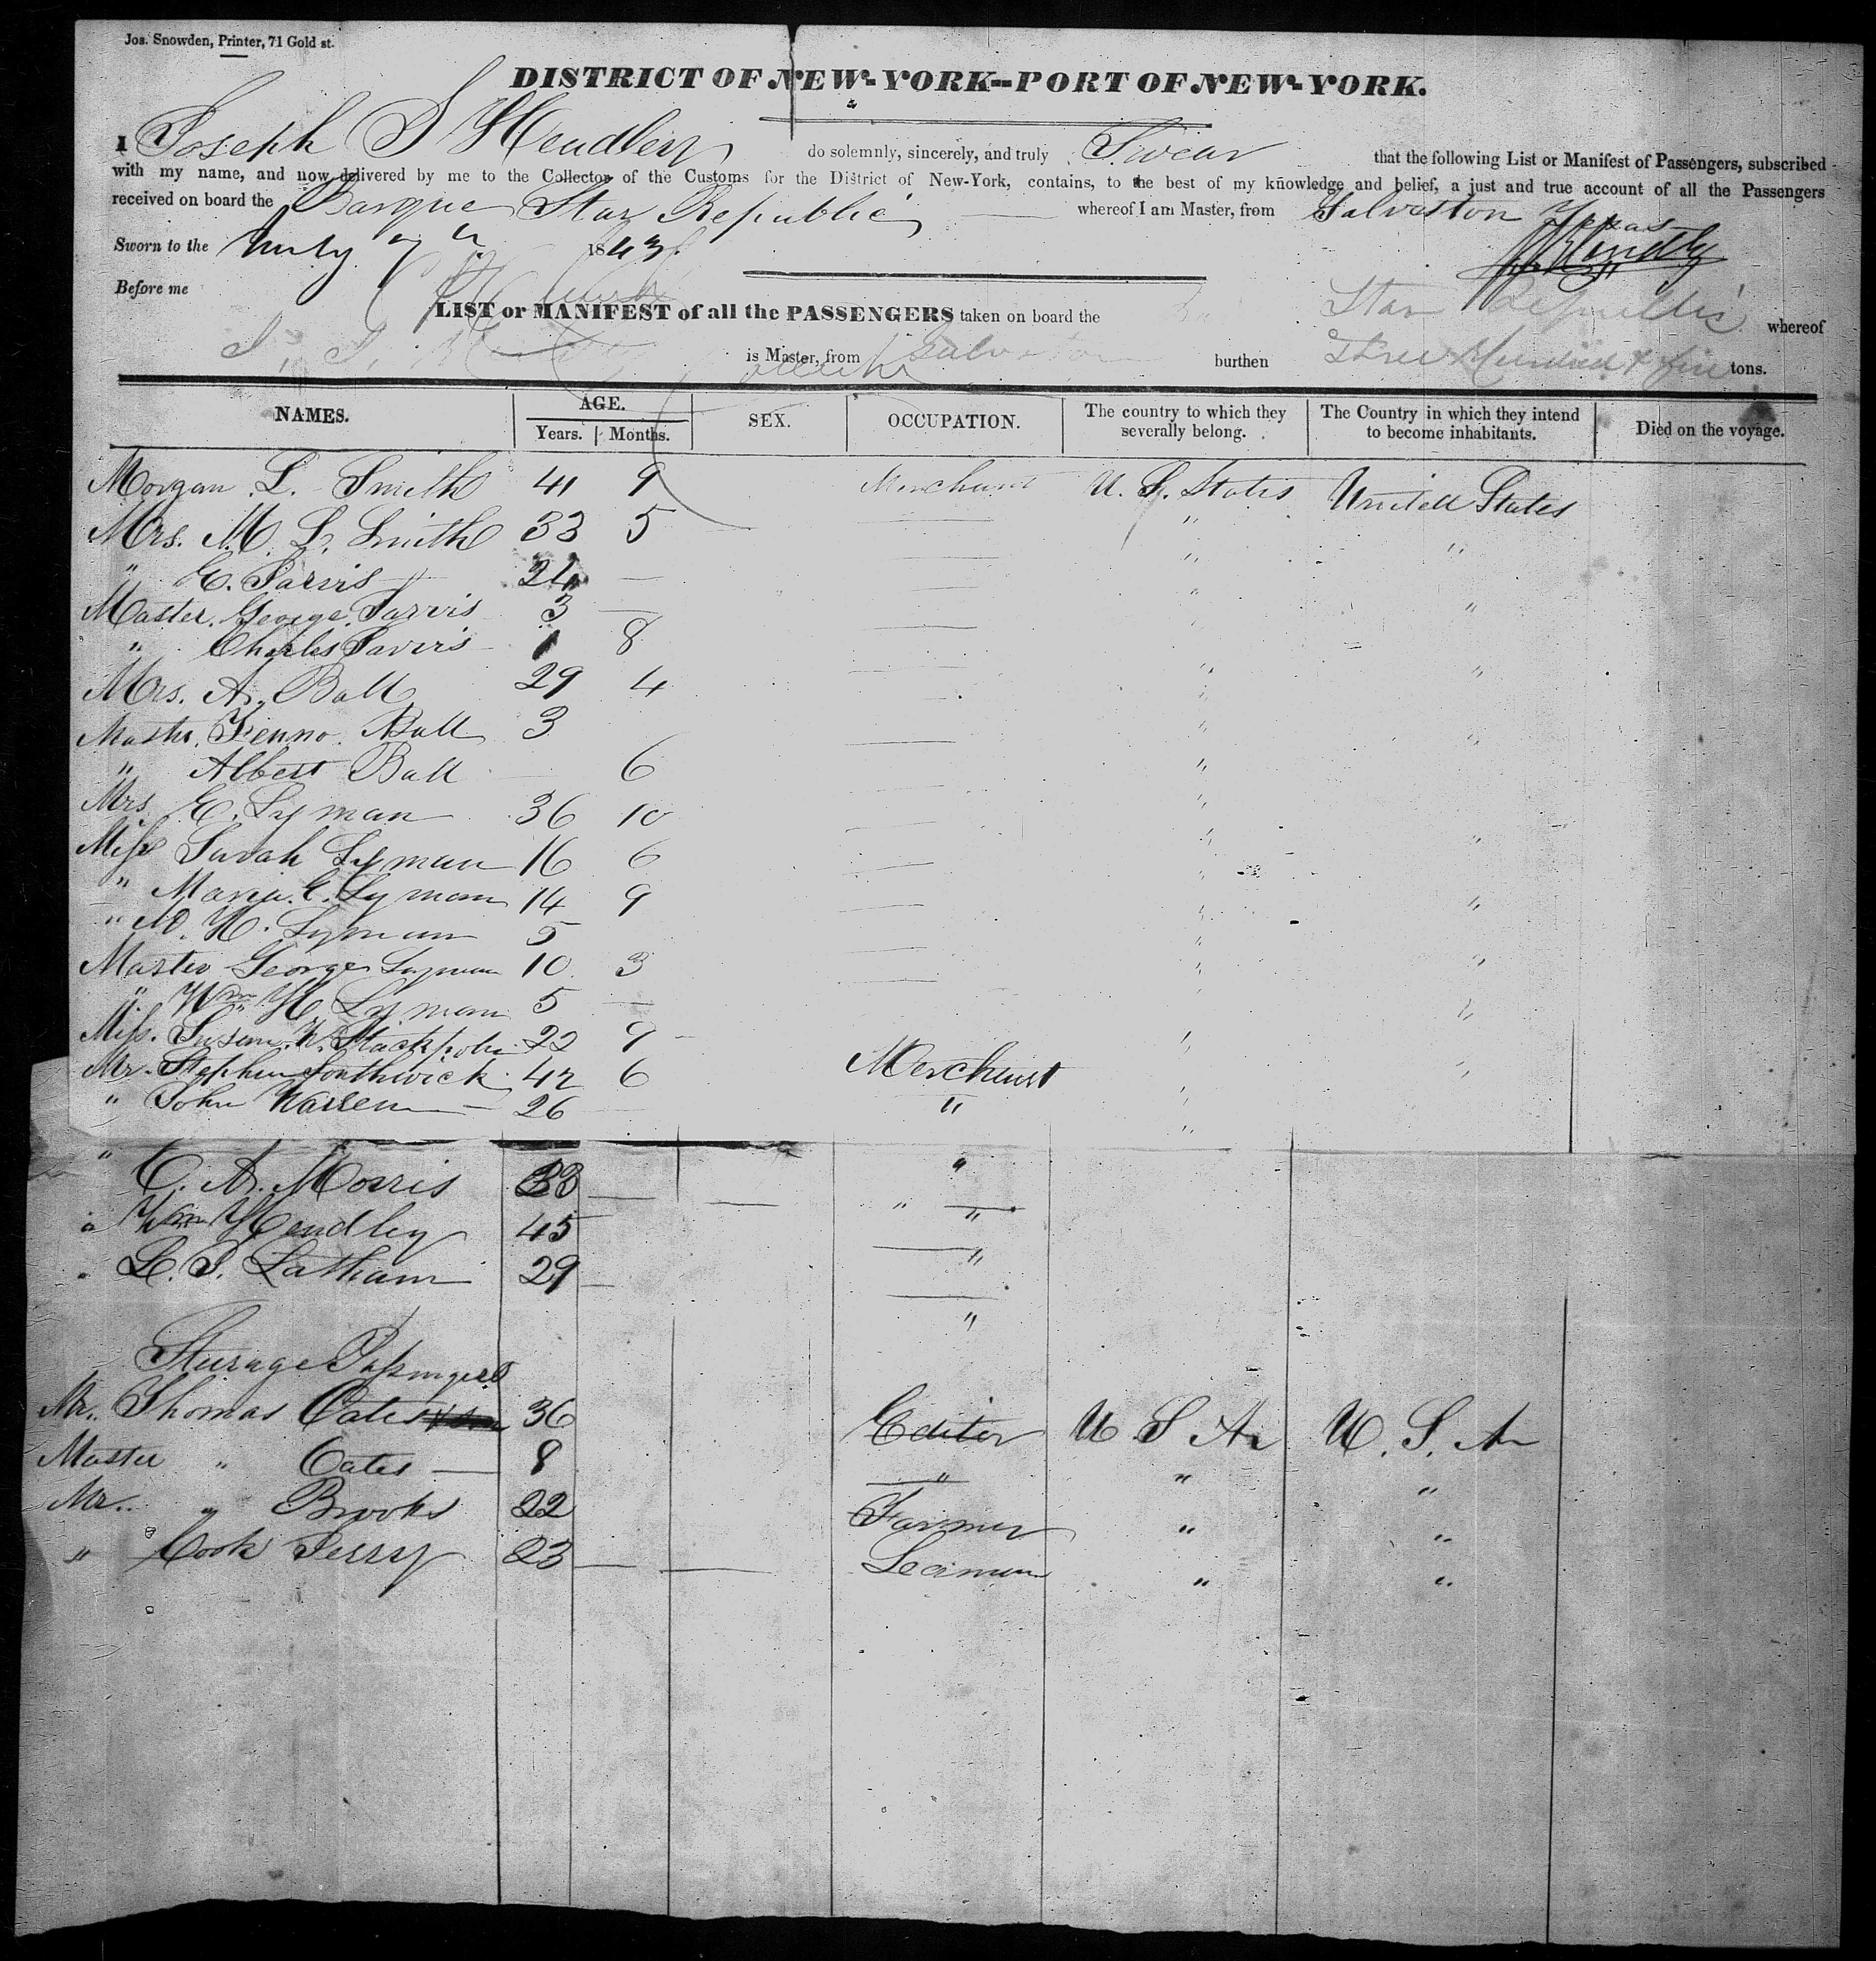 Jos. Snowden, Printer, 71 Gold st.
DISTRICT OF NEW-YORK--PORT OF NEW-YORK.
I Joseph S Hendley do solemnly, sincerely, and truly Swear that the following List or Manifest of Passengers, subscribed
with my name, and now delivered by me to the Collector of the Customs for the District of New-York, contains, to the best of my knowledge and belief, a just and true account of all the Passengers
received on board the Barque Star Republic whereof I am Master, from Galvaston Texas
Sworn to the July 7 1843
Before me
LIST or MANIFEST of all the PASSENGERS taken on board the Star Republic whereof
is Master, from Galveston burthen Three Hundred & five tons.
NAMES. AGE. SEX. OCCUPATION. The country to which they severally belong. The Country in which they intend to become inhabitants. Died on the voyage.
Years. Months.
Morgan L. Smith 41 9 Merchant U. S. States United States
Mrs. M. L. Smith 33 5 " "
" E. Jarvis 24 — " "
Master George Jarvis 3 — "
" Charles Jarvis 1 8
Mrs. A. Ball 29 4 " "
Mastr. Fenno Ball 3 " "
" Albert Ball — 6 "
Mrs E. Lyman 36 10 "
Miss Sarah Lyman 16 6 " "
" Maria E. Lyman 14 9 " "
" M. H. Lyman 5 "
Master George Lyman 10 3 " "
" Wm H. Lyman 5 — "
Miss. Susan W. Stackpole 22 9 "
Mr. Stephen Southwick 42 6 Merchant " "
" John Warren 26 " "
" C. A. Morris 33 — "
" Wm Hendley 45 " "
" L. S. Latham 29 — "
"
Sturage Passingers
Mr. Thomas Cates 36 Editor U S A U. S. A
Master " Cates — 8 " " "
Mr. " Brooks 22 Farmer " "
" Cook Perry 23 — Seaman " "